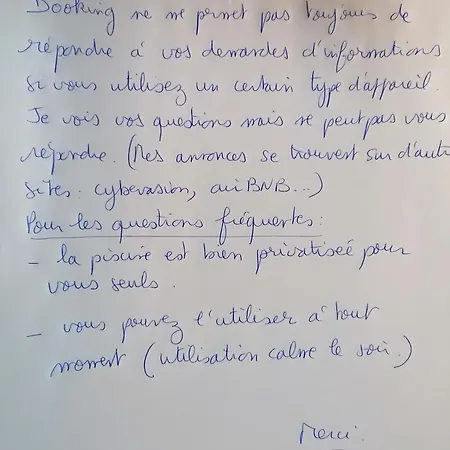 Booking ne me permet pas toujours de
répondre à vos demandes d'informations
si vous utilisez un certain type d'appareil.
Je vois vos questions mais ne peut pas vous
répondre. (Mes annonces se trouvent sur d'aut
sites : cybevasion, airBNB...)
Pour les questions fréquentes :
- la piscine est bien privatiseé pour
vous seuls.
- vous pouvez l'utiliser à tout
moment (utilisation calme le soir.)
Merci.